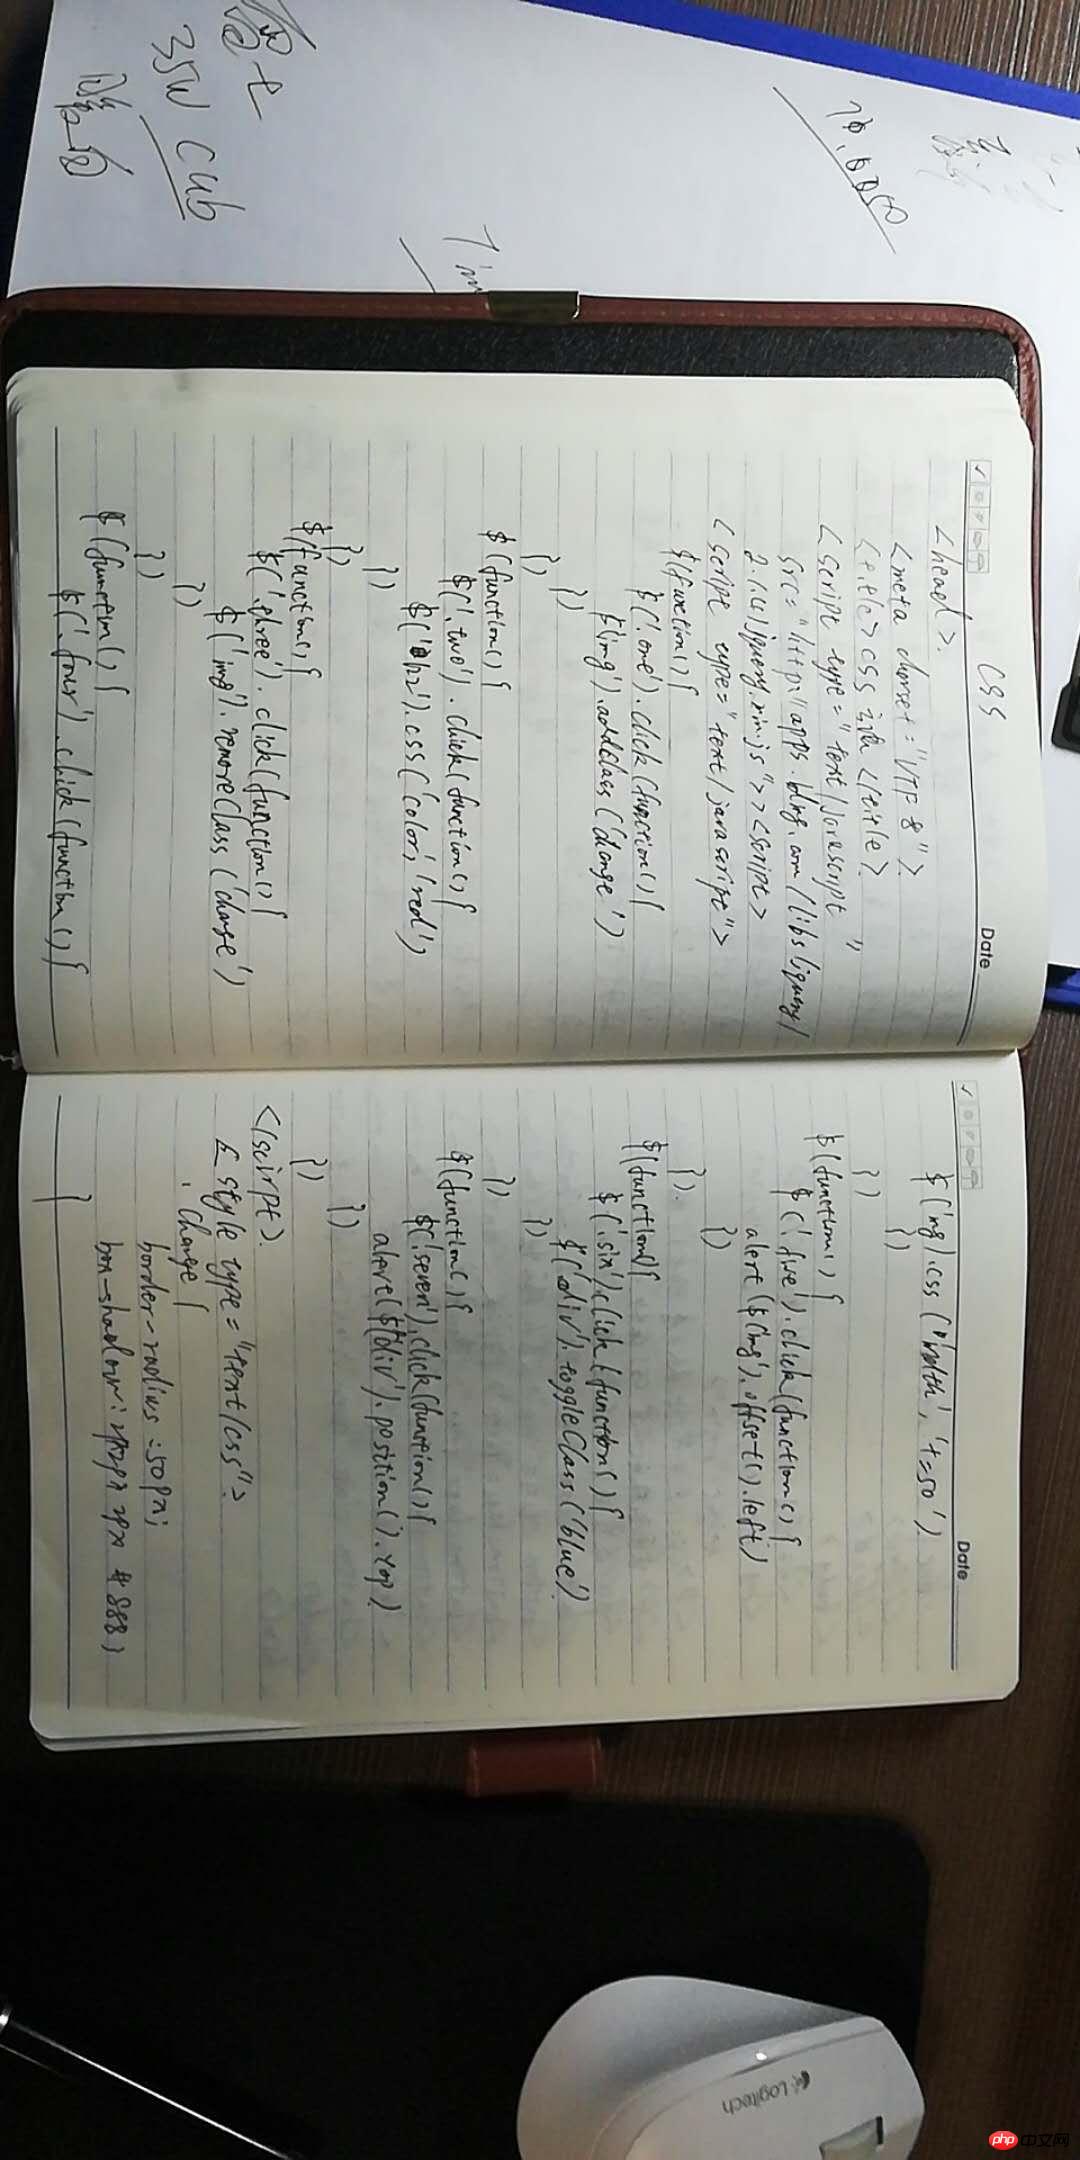 35W
cub
CSS
Date
<head>.
<meta charset="UTF-8">
<title>CSS </title>
<script type="text/Javascript"
src="http://apps.bdimg.com/libs/jquery/
2.1.4/jquery.min.js">><script>
<script type="text/javascript">
$(function(){
$('.one').click(function(){
$('img').addclass('change')
})
})
$(function(){
$('.two').click(function(){
$('h2').css('color','red')
})
})
$(function(){
$('.three').click(function(){
$('img').removeClass('change')
})
})
$(function(){
$('.four').click(function(){
Date
$('img').css('width','+=50')
})
})
$(function(){
$('.five').click(function(){
alert($('img').offset().left)
})
}).
$(function(){
$('.six').click(function(){
$('div').toggleClass('blue')
})
})
$(function(){
$('.seven').click(function(){
alert($('div').position().top)
})
})
</scirpt>.
<style type="text/css">
.change{
border-radius:50px;
box-shadow: 2px 2px #888;
}
Logitech
php中文网